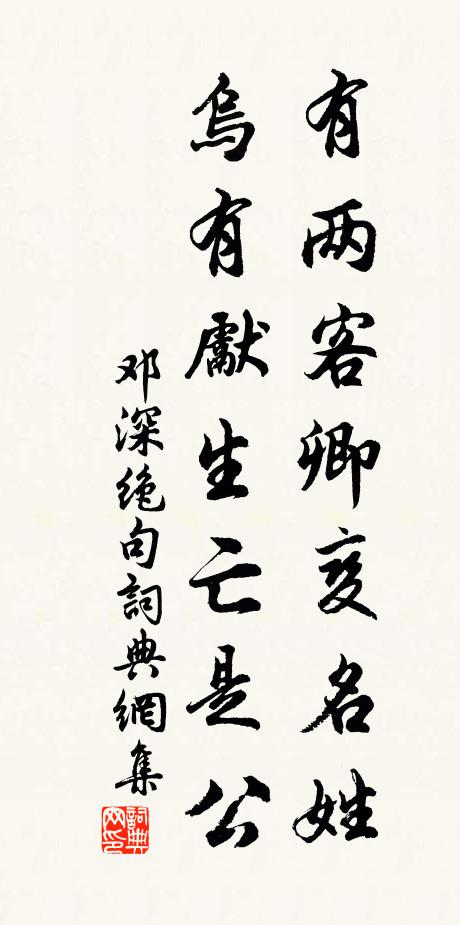 有两客卿变名姓
烏有獻生亡是公
邓深绝句詞典網集
詞典网印